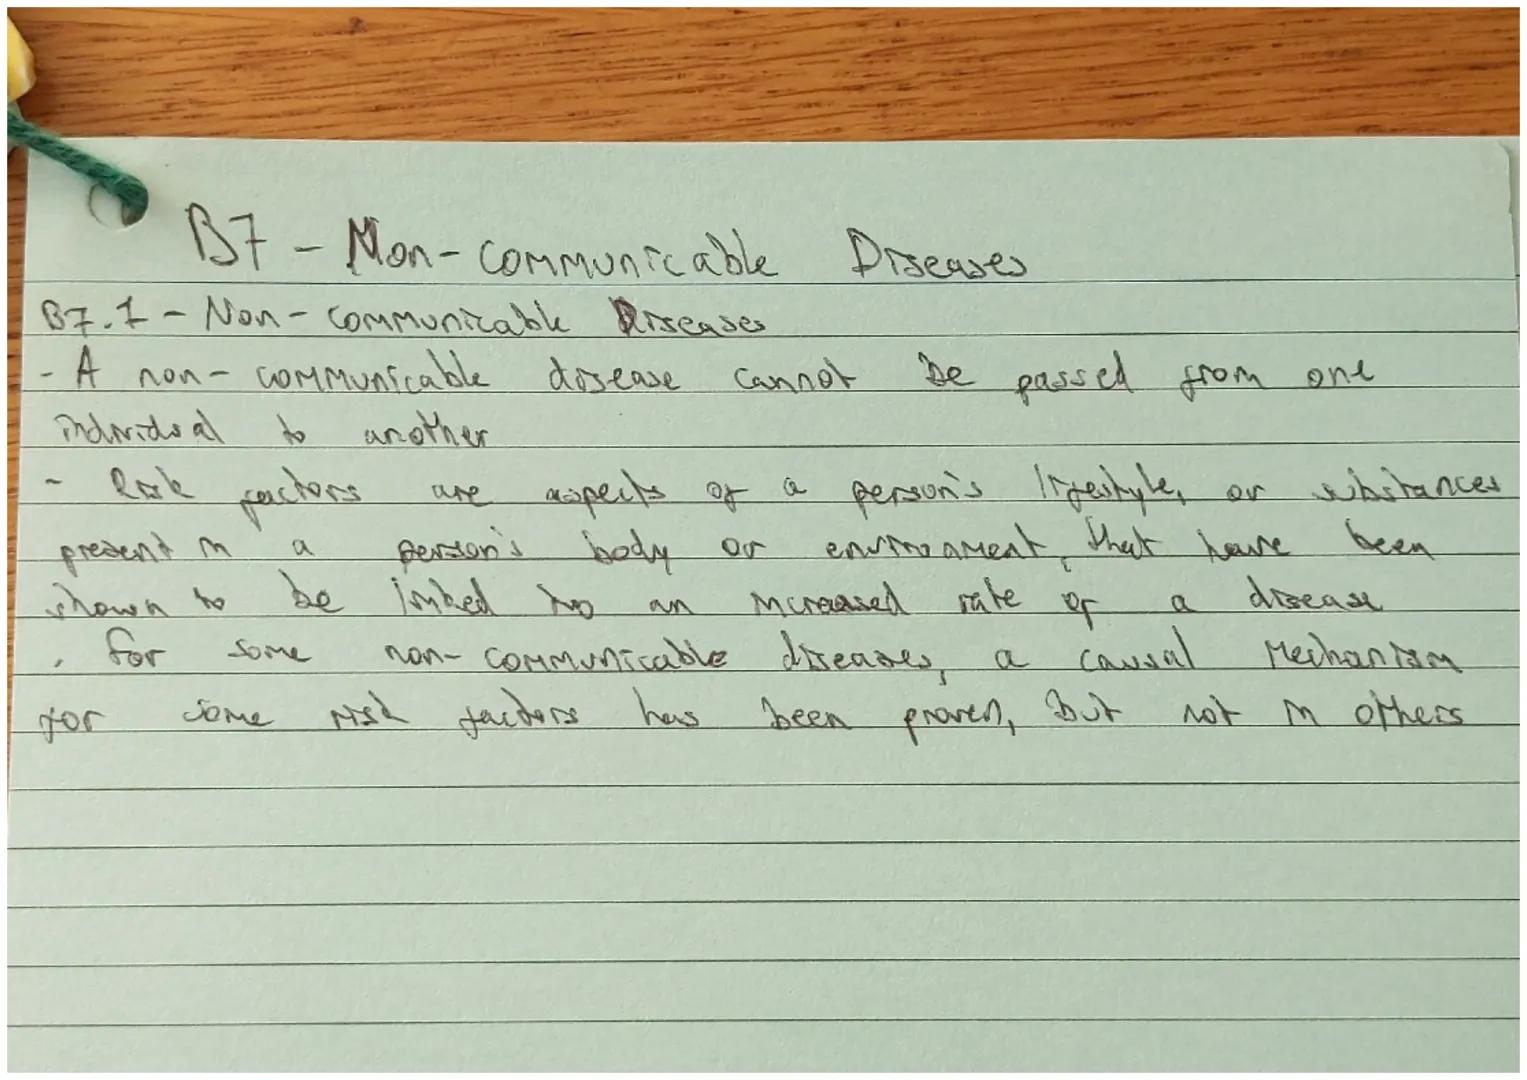 B7 - Non-communicable Diseases
B7.1 - Non-communicable Diseases
- A non-communicable disease cannot be passed from one
individual to another
- Risk factors are aspects of a person's lifestyle, or substances
present in a person's body or environment, that have been
shown to be linked to an increased rate of a disease
. For some non-communicable diseases, a causal mechanism
for some risk factors has been proven, but not in others